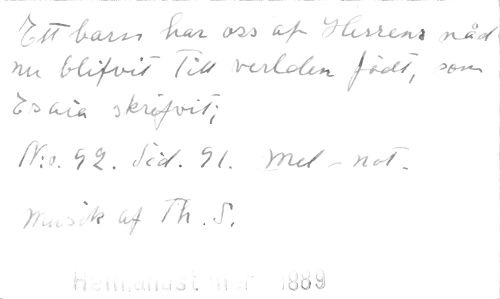 Ett barn har oss af Herrens nåd
nu blifvit till verlden födt, som
Esaia skrifvit;
N:o. 92. Sid. 91. Mel-not.
Musik af Th. S.
1889